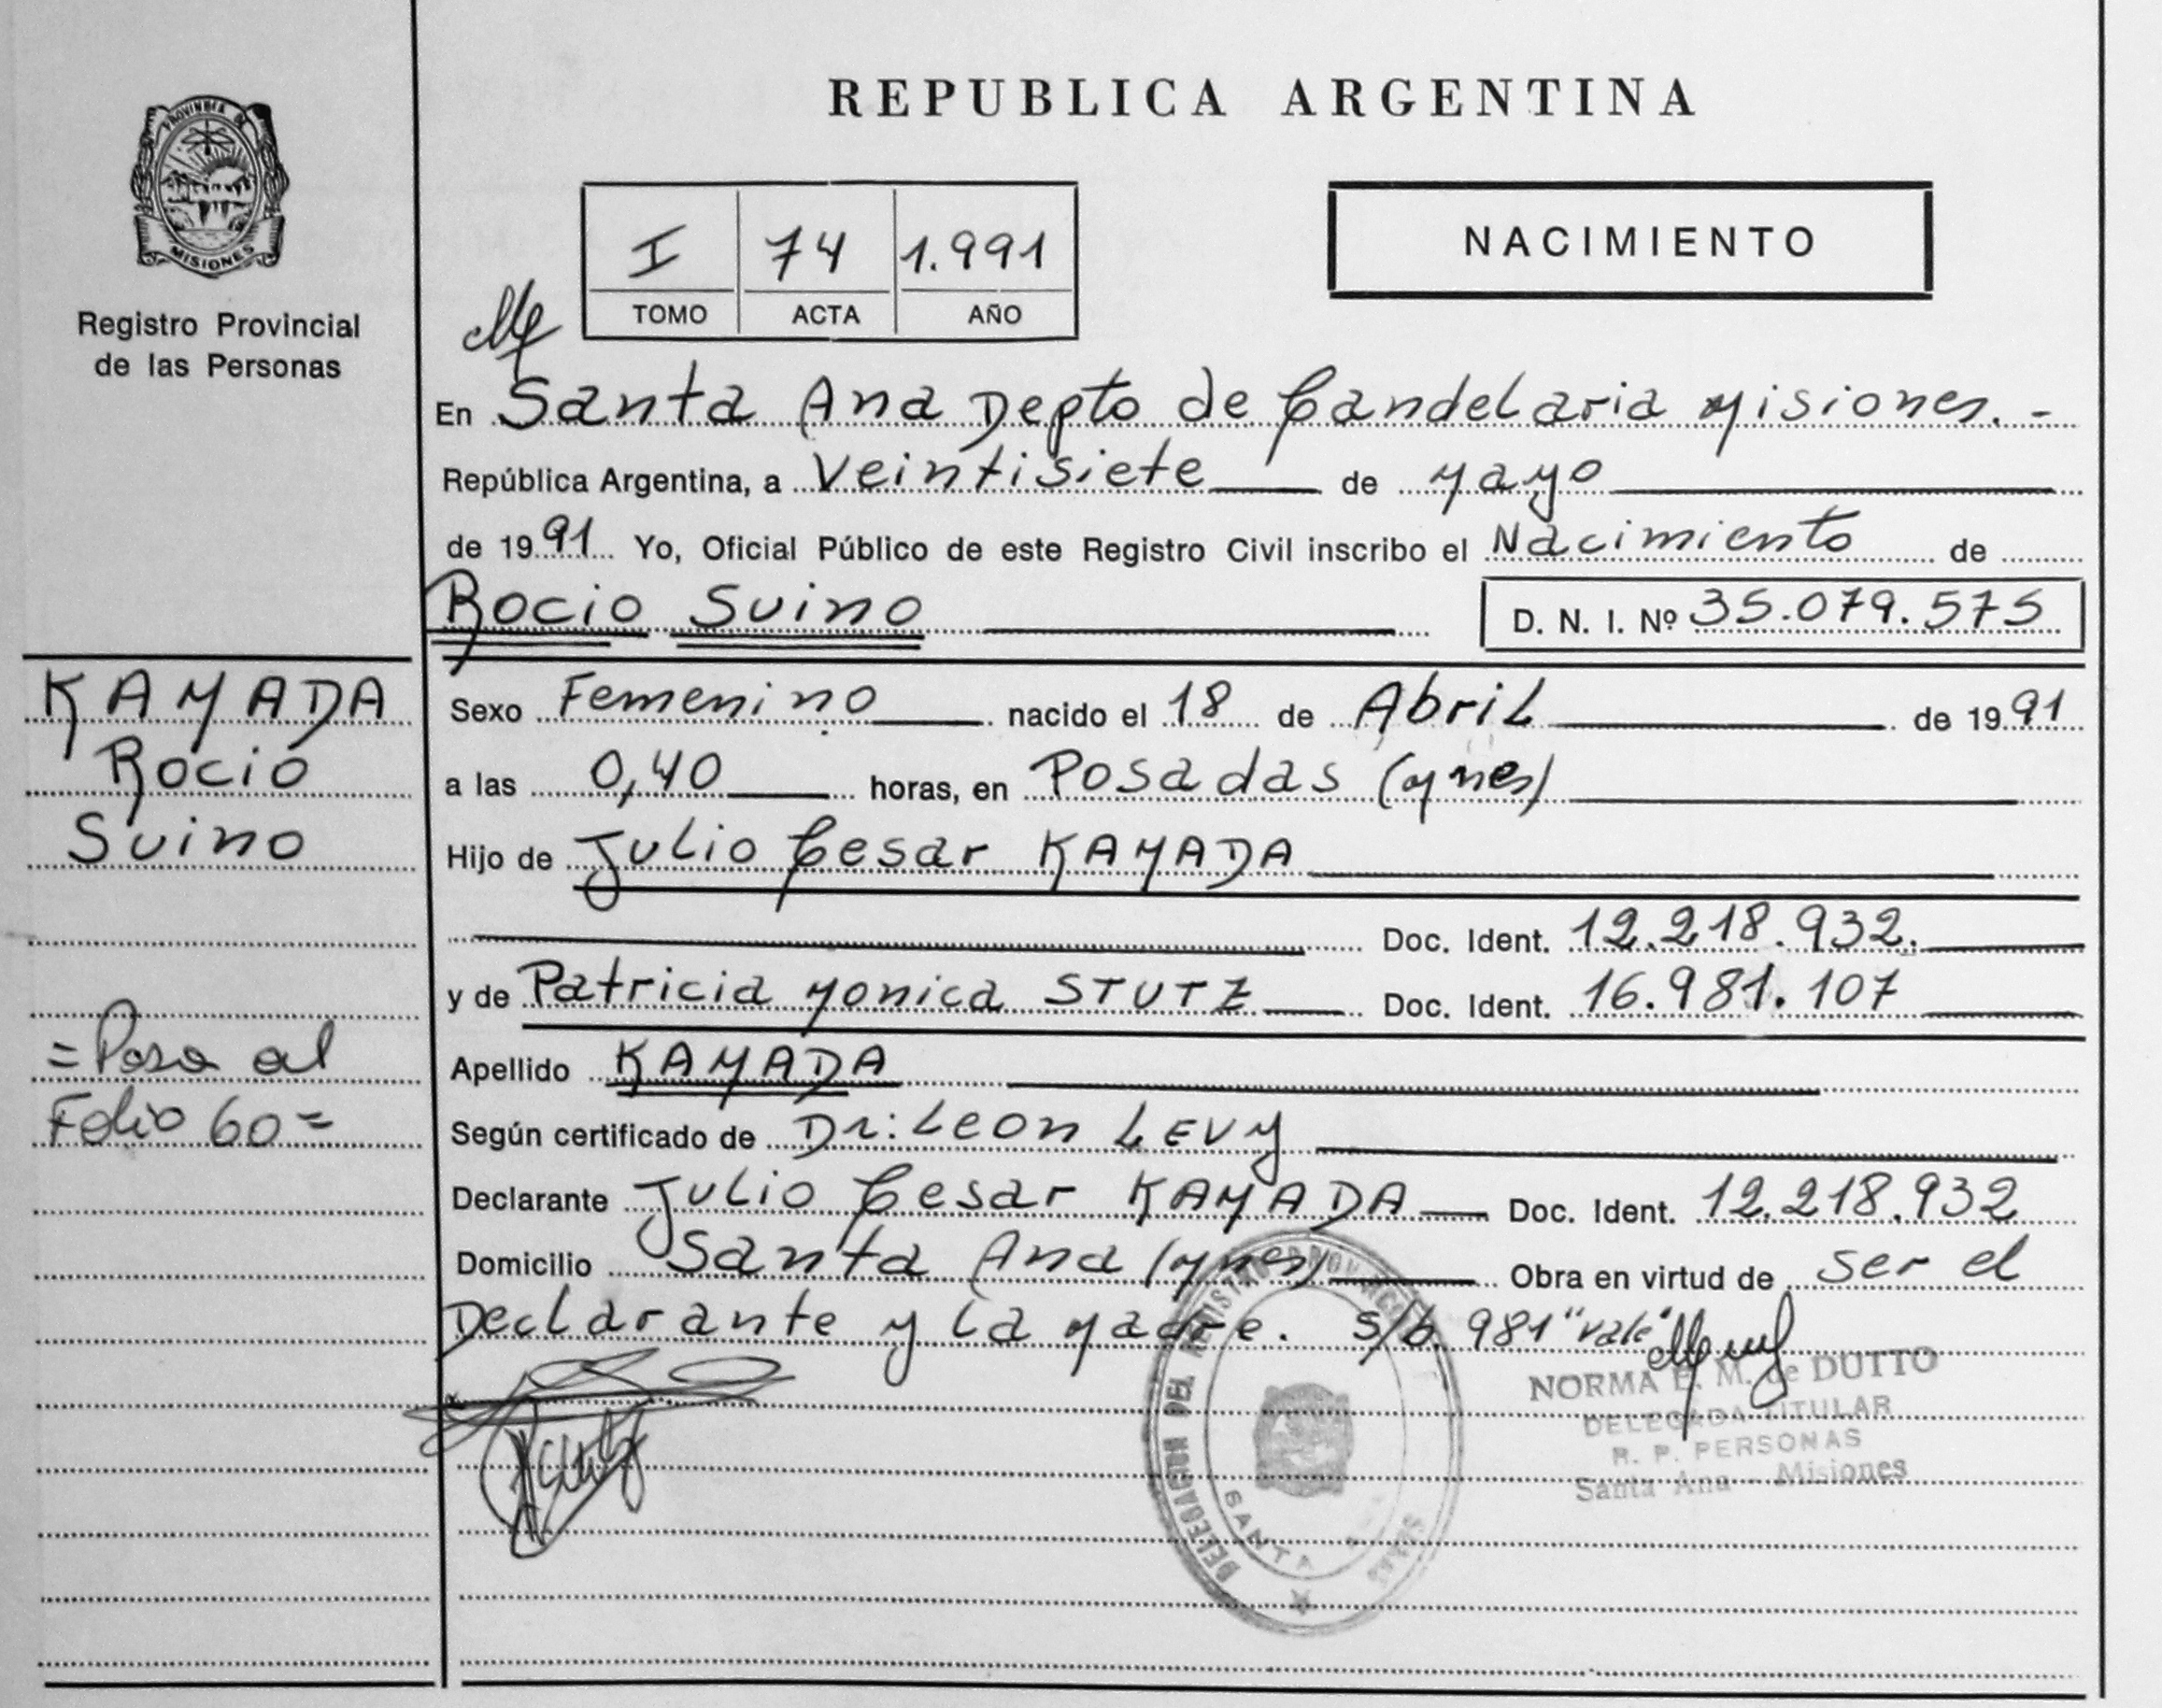 REPUBLICA ARGENTINA
PROVINCIA DE MISIONES
Registro Provincial
de las Personas
I 74 1.991
TOMO ACTA AÑO
NACIMIENTO
En Santa Ana Depto de Candelaria Misiones.-
República Argentina, a Veintisiete de Mayo
de 1991 Yo, Oficial Público de este Registro Civil inscribo el Nacimiento de
Rocio Suino D. N. I. Nº 35.079.575
KAMADA
Rocio
Suino
=Pasa al
Folio 60=
Sexo Femenino nacido el 18 de Abril de 1991
a las 0,40 horas, en Posadas (Mnes)
Hijo de Julio Cesar KAMADA
Doc. Ident. 12.218.932.
y de Patricia Monica STUTZ Doc. Ident. 16.981.107
Apellido KAMADA
Según certificado de Dr: Leon LEVY
Declarante Julio Cesar KAMADA Doc. Ident. 12.218.932
Domicilio Santa Ana (Mnes) Obra en virtud de ser el
Declarante y la Madre. s/b. 981 "Vale"
NORMA E. M. de DUTTO
DELEGADA TITULAR
R. P. PERSONAS
Santa Ana - Misiones
DELEGACION DEL REGISTRO PROVINCIAL
SANTA